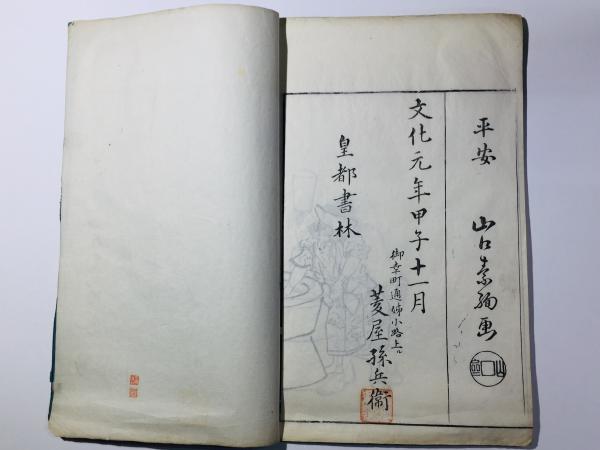 平安 山口素絢画
文化元年甲子十一月
皇都書林
御幸町通姉小路上ル
菱屋孫兵衛